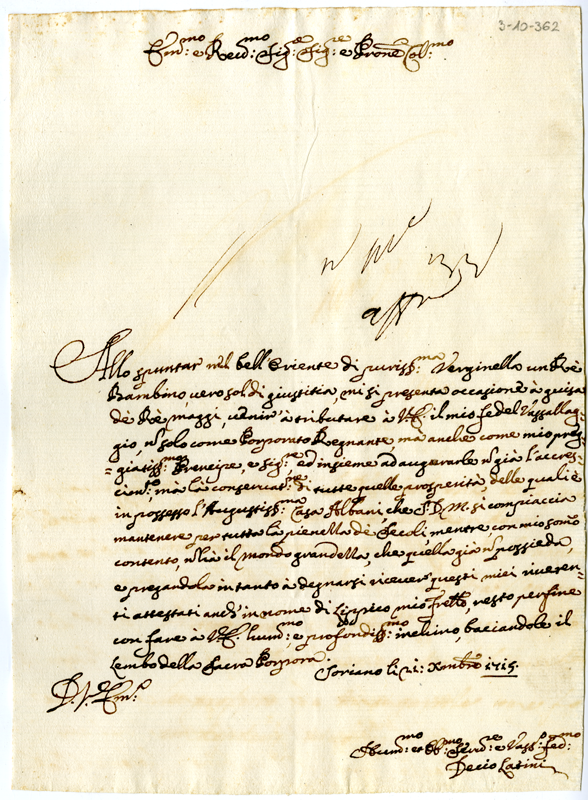 3-10-362
Em:mo e Reud:mo Sig:re Sig:re e Prone Col:mo
Allo spuntar nel bell'Oriente di puriss:ma Verginella un Rè
Bambino vero sol di giustitia, mi si presenta occasione à guisa
de Rè maggi, venir' à tributare à V.E. il mio fedel Vassallag=
gio, nō solo come Porporato Regnante, mà anche come mio pre=
=giatiss:mo Prencipe, e Sig:re, ed insieme ad augurarle nō già l'accres=
cim:to, mà la conservat:ne di tutte quelle prosperità, delle quali è
in possesso l'Augustiss:ma Casa Albani, che S.D.M. si compiaccia
mantenere per tutta la pienezza de Secoli, mentre, con mio som̄o
contento, nō hà il mondo grandezza, che quella già nō possieda,
e pregandola intanto à degnarsi ricever questi miei riveren=
ti attestati anch'in nome di mio frēllo, resto per fine
con fare à V.E. hum:mo e profondiss:mo inchino, baciandole il
Lembo della Sacra Porpora
Soriano li 21: Xmbre 1715.
D. V. Em:
Hum:mo et Ob:mo Serv:re e Vass:o fed:mo
Decio Latini